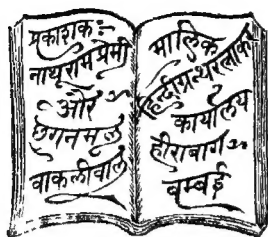 प्रकाशक:—
नाथूराम प्रेमी
और
छगनमल
वाकलीवाल
मालिक
हिन्दीग्रन्थरत्नाकर
कार्यालय
हीराबाग
बम्बई